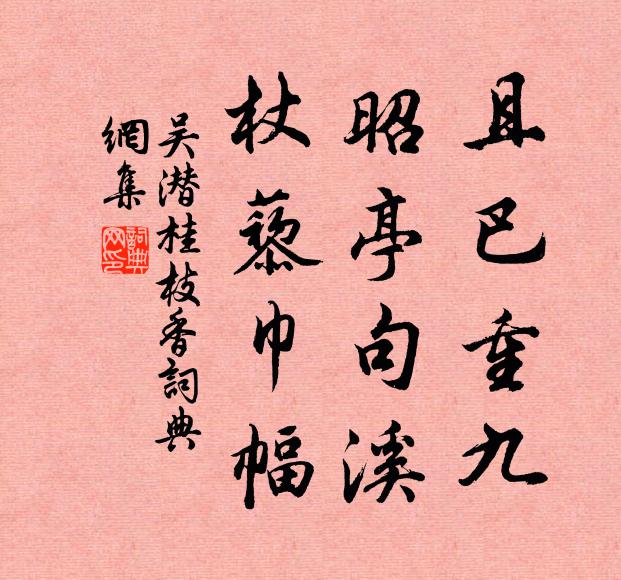 且已重九
昭亭句溪
杖藜巾幅
吴潜桂枝香詞典
網集
詞典網印